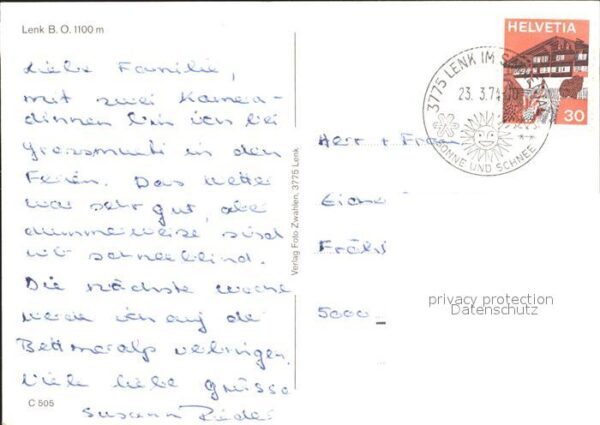 Lenk B. O. 1100 m
Liebe Familie,
mit zwei Kamera-
dinnen bin ich bei
Grossmueti in den
Ferien. Das Wetter
war sehr gut, aber
dummerweise sind
wir schneeblind.
Die nächste Woche
werde ich auf der
Bettmeralp verbringen.
Viele liebe Grüsse
Susann
C 505
Verlag Foto Zwahlen, 3775 Lenk
HELVETIA
30
3775 LENK IM
23. 3.74
SONNE UND SCHNEE
Herr + Frau
5000
privacy protection
Datenschutz